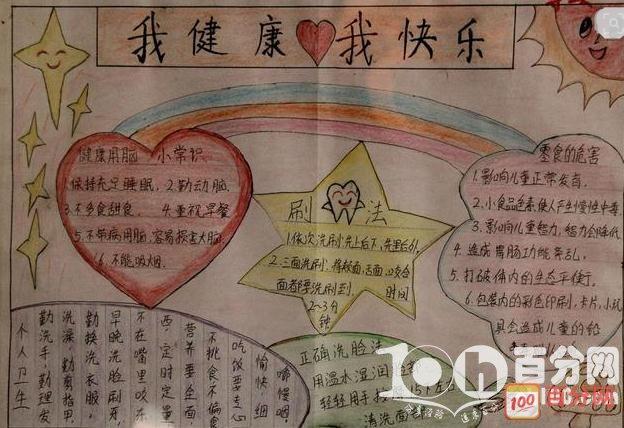 我健康 我快乐
健康用脑 小常识
1.保持充足睡眠. 2.勤动脑.
3.不多食甜食. 4.重视早餐
5.不带病用脑.容易损害大脑.
6.不能吸烟.
刷 法
1.依次洗刷:先上后下,先里后外.
2.三面洗刷:将 面.舌面.咬合
面都要洗刷到.
时间
2~3分
钟
零食的危害
1.影响儿童正常发育.
2.小食品色素使人产生慢性中毒.
3.影响儿童智力,智力会降低
4.造成胃肠功能紊乱.
5.打破体内的生态平衡.
6.包装内的彩色印刷,卡片,小玩
具会造成儿童的铅
个人卫生
勤洗手,勤理发
洗澡 勤剪指甲.
勤换洗衣服,
早晚洗脸刷牙,
不在嘴里咬东
西,定时定量
营养要全面,
不挑食不偏食
吃饭要专心
愉快,细
嚼慢咽.
正确洗脸法
用温水湿润脸
轻轻用手按 15下左
清洗面
百分网
100